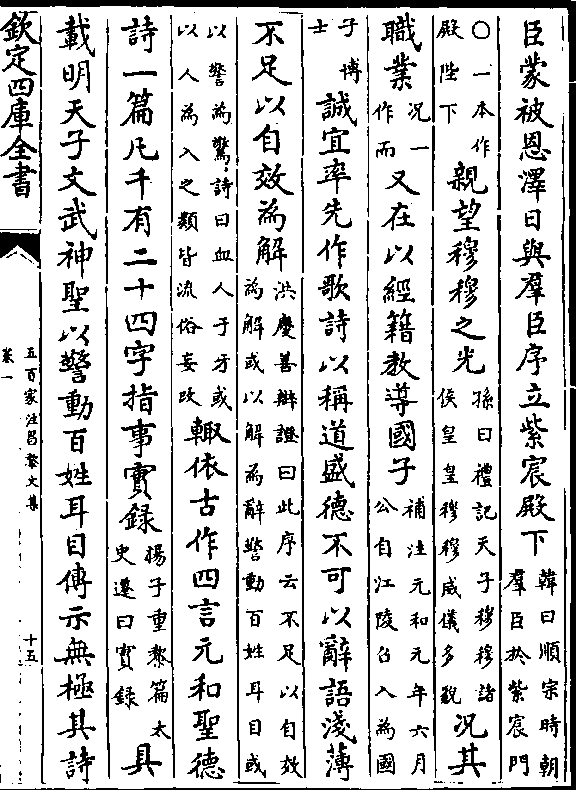 臣蒙被恩澤日與羣臣序立紫宸殿下韓曰順宗時朝羣臣於紫宸門
○一本作殿陛下親望穆穆之光孫曰禮記天子穆穆諸侯皇皇穆穆威儀多貌況其
職業況一作而又在以經籍教導國子補注元和元年六月公自江陵召入為國
子博士誠宜率先作歌詩以稱道盛德不可以辭語淺薄
不足以自效為解洪慶善辯證曰此序云不足以自效為解或以解為辭警動百姓耳目或
以警為驚詩曰血人于牙或以人為入之類皆流俗妄改輙依古作四言元和聖德
詩一篇凡千有二十四字指事實錄楊子重黎篇太史遷曰實錄具
載明天子文武神聖以警動百姓耳目傳示無極其詩
欽定四庫全書
五百家注昌黎文集
卷一
十五